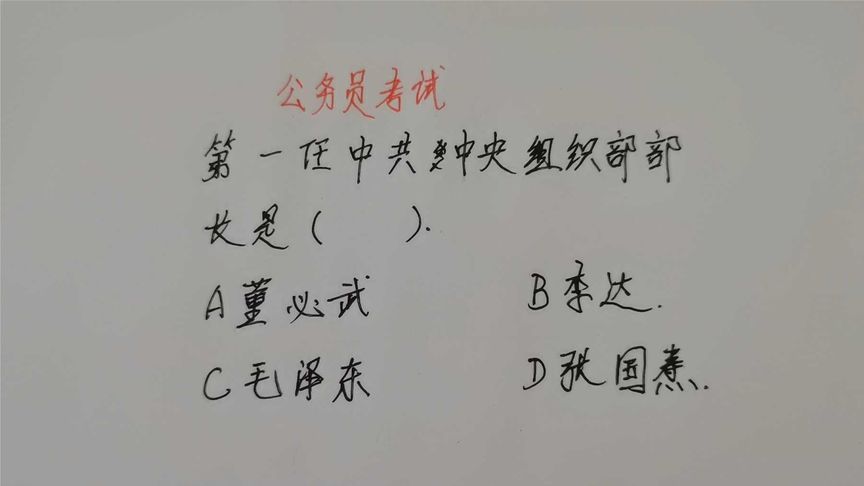 公务员考试
第一任中共中央组织部部
长是（　　）.
A董必武　B李达.
C毛泽东　D张国焘.